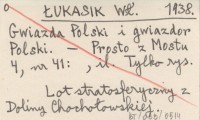 ŁUKASIK Wł. 1938.
Gwiazda Polski i gwiazdor
Polski. – Prosto z Mostu
4, nr 41: , il. Tylko rys.
Lot stratosferyczny z
Doliny Chochołowskiej.